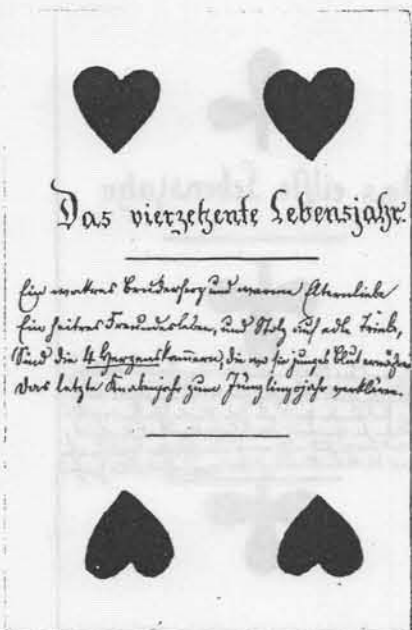 Das vierzehente Lebensjahr.
Ein wakres Bruderherz und warme Elternliebe
Ein heitres Freundesleben, und Stolz auf edle Triebe,
Sind die 4 Herzenskammern, die wo sie junges Blut
Das letzte Knabenjahr zum Jünglingsjahr verklären.